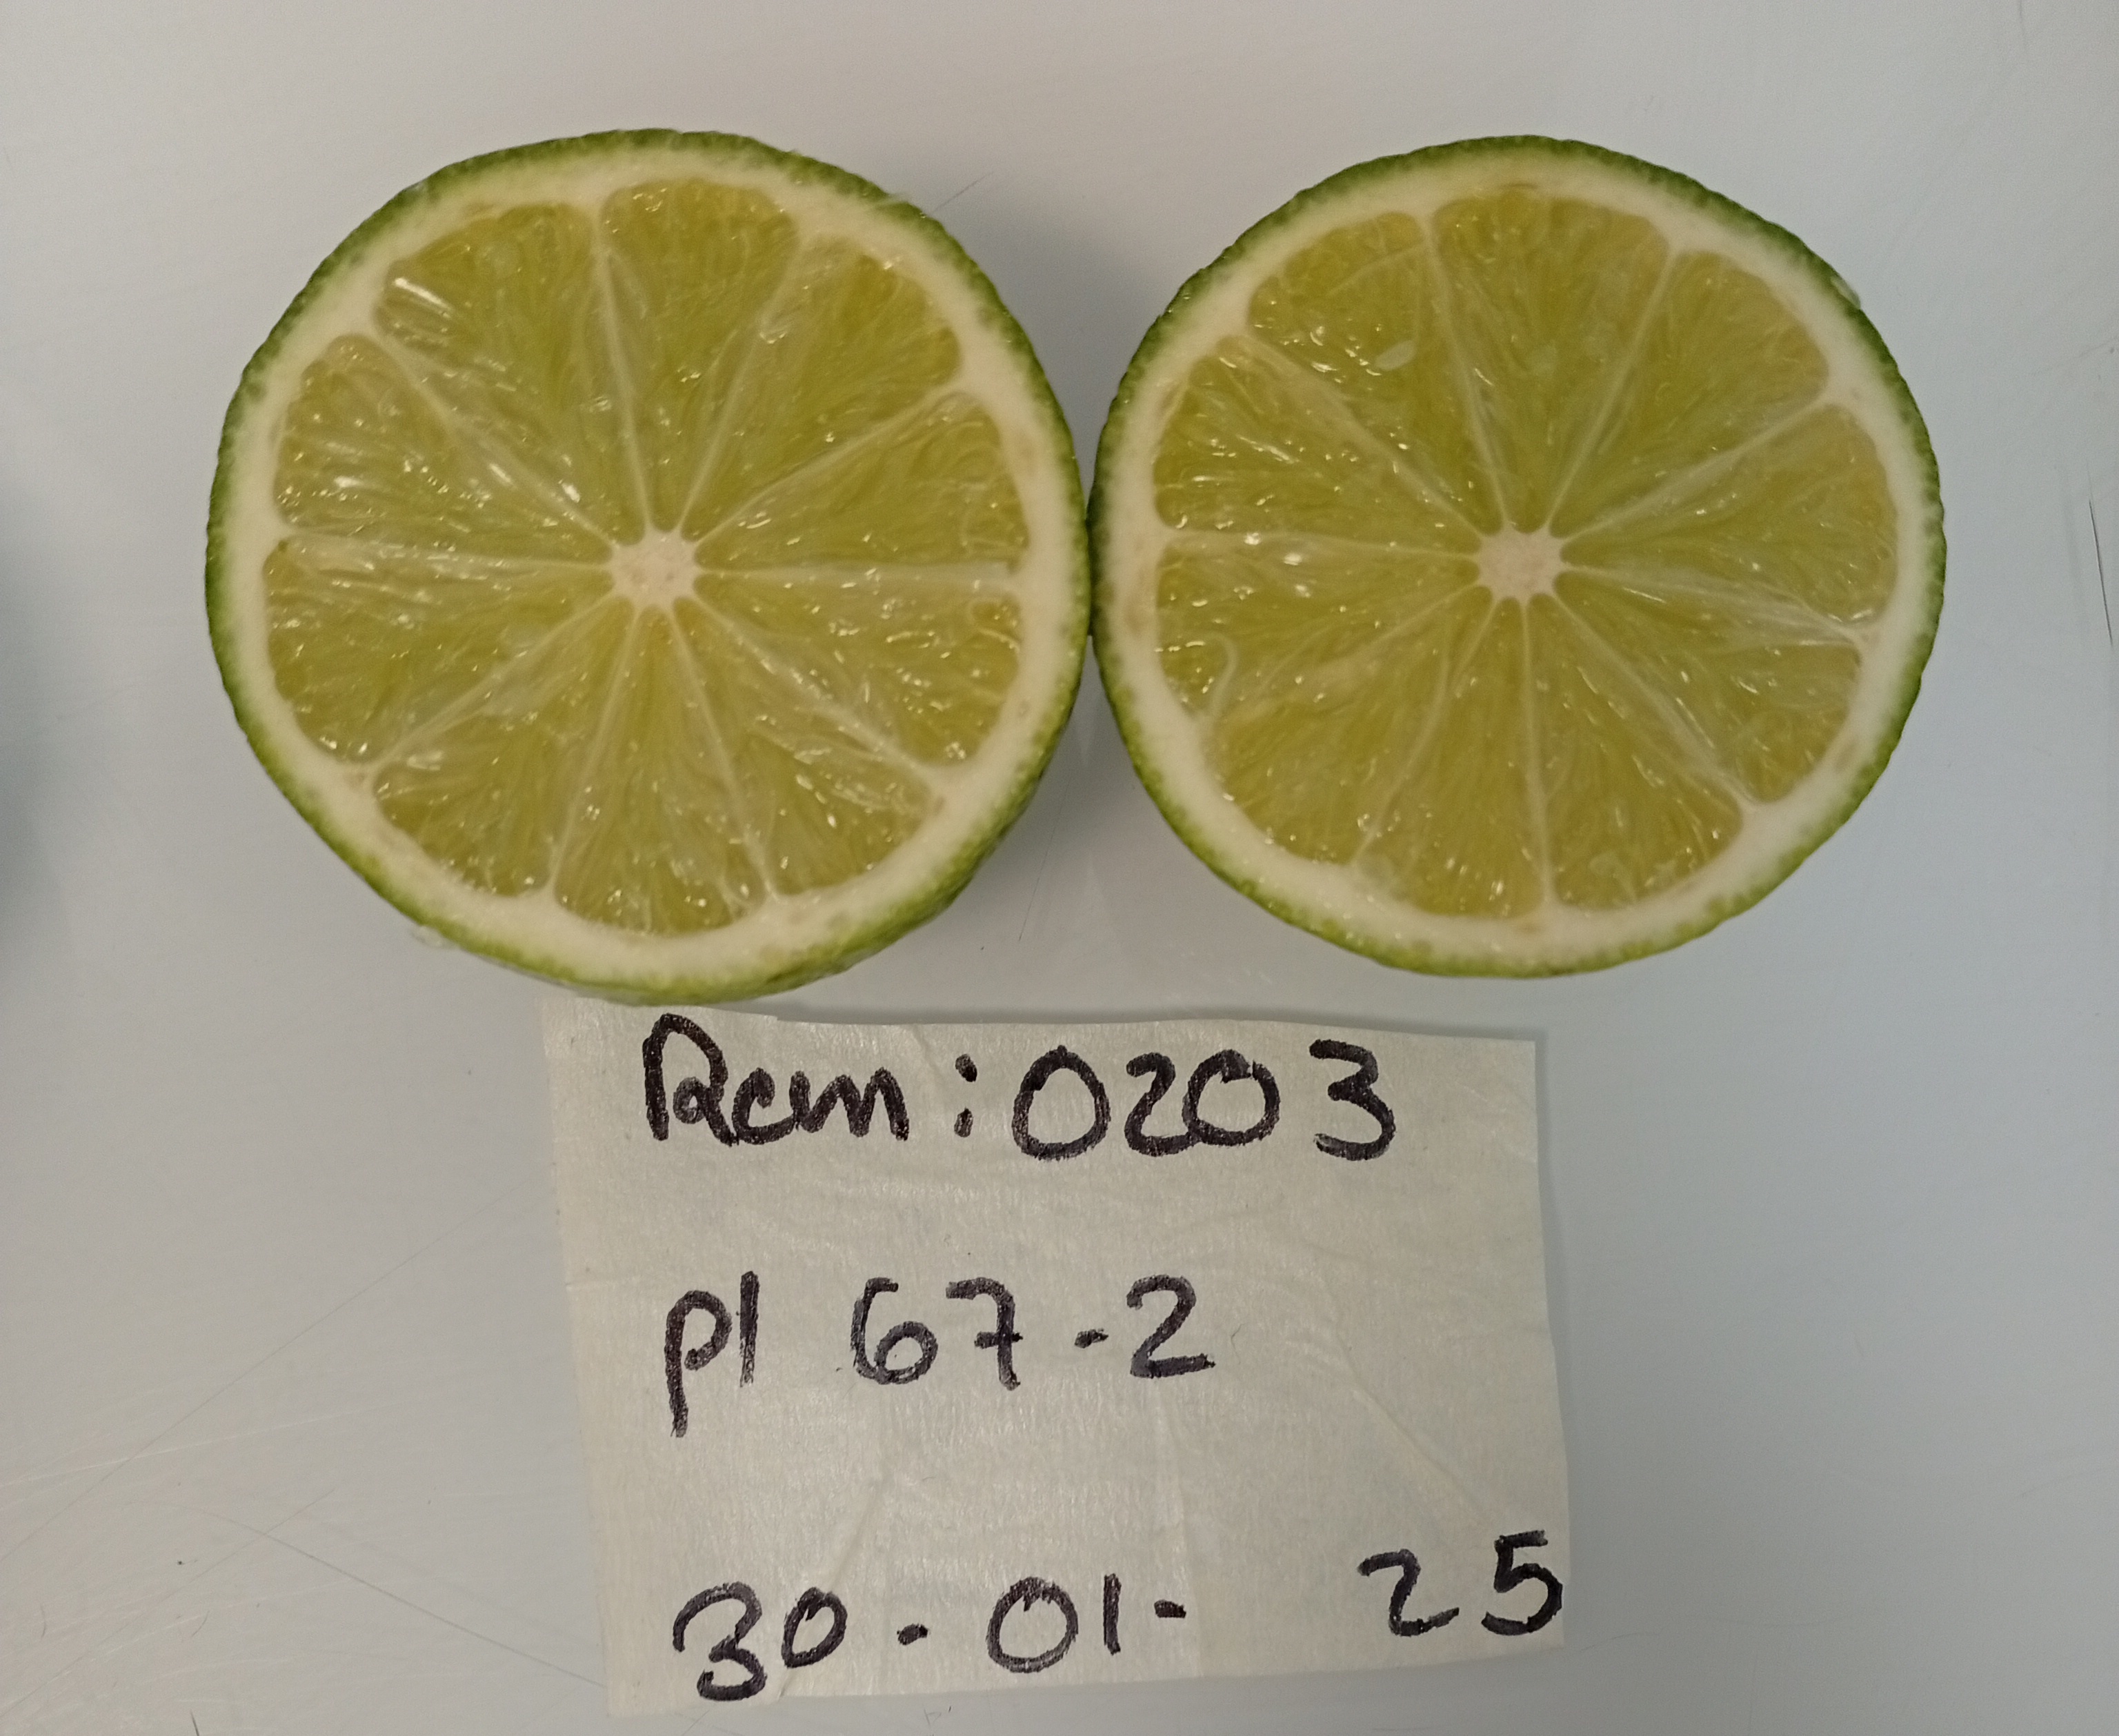 Rem: 0203
pl 67-2
30-01- 25